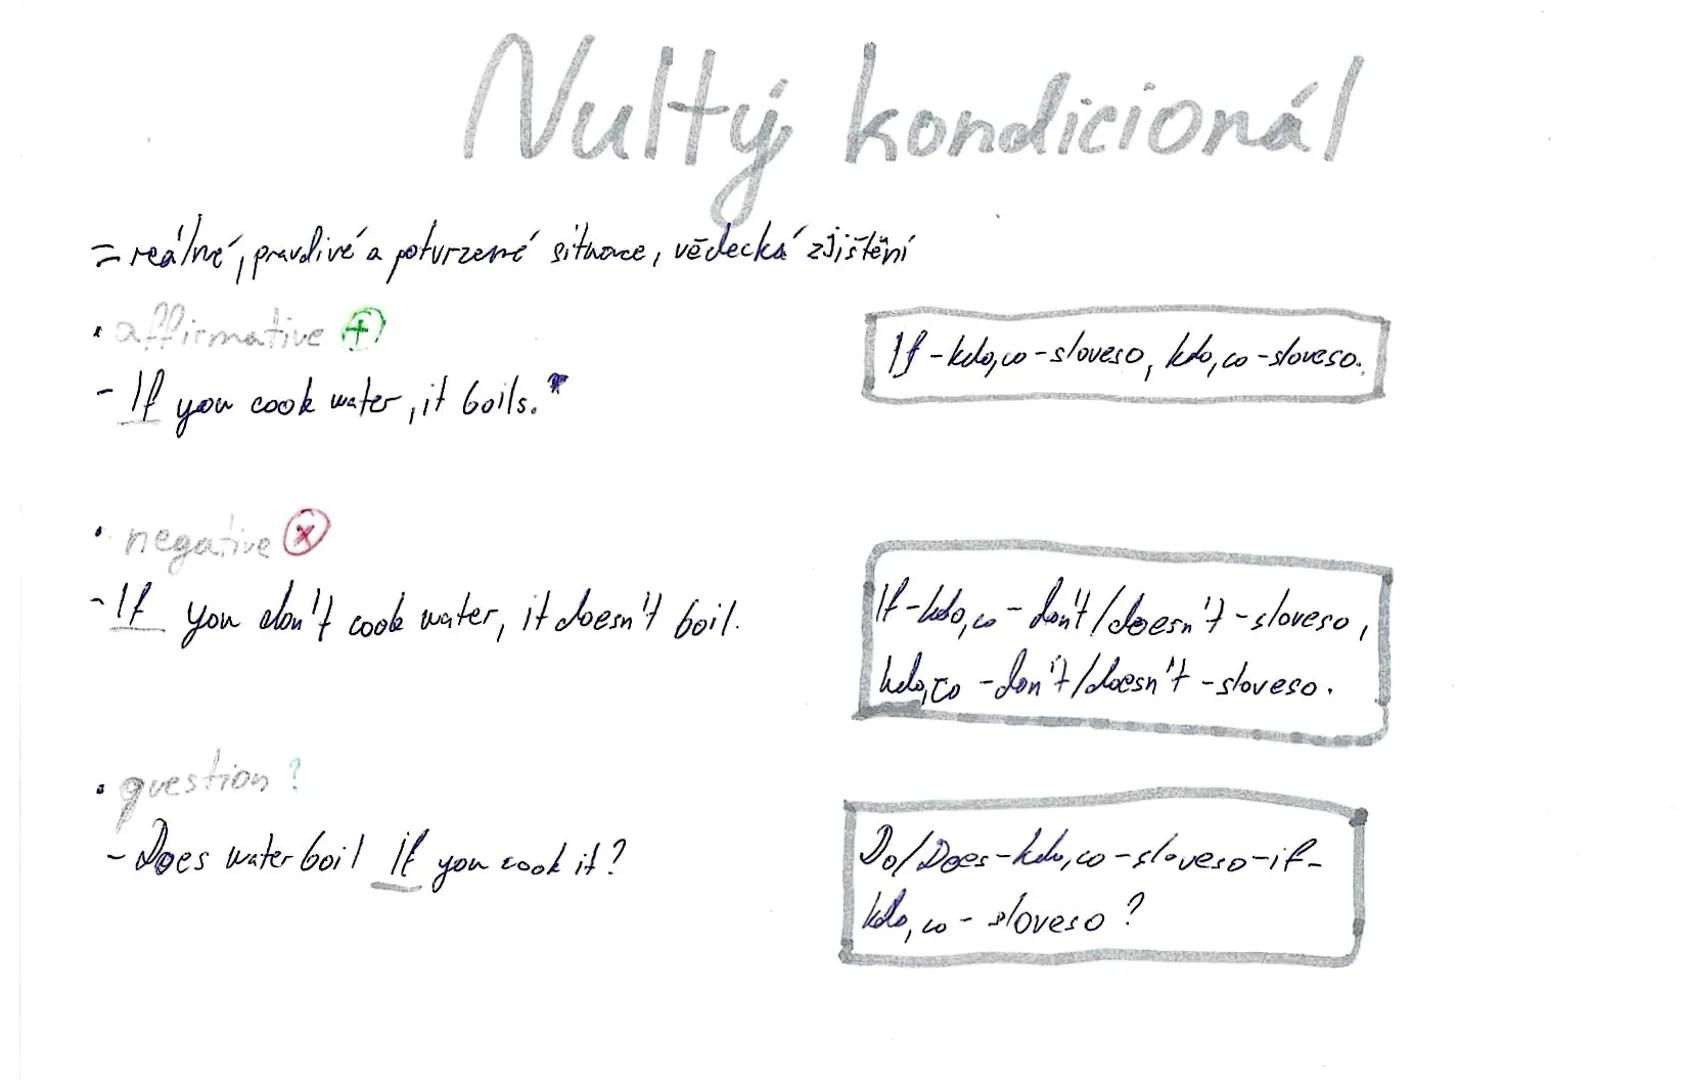 Nultý kondicionál
= reálné, pravdivé a potvrzené situace, vědecká zjištění
• affirmative +
- If you cook water, it boils.*
If - kdo, co - sloveso, kdo, co - sloveso.
• negative x
- If you don't cook water, it doesn't boil.
If - kdo, co - don't/doesn't - sloveso,
kdo, co - don't/doesn't - sloveso.
• question ?
- Does water boil If you cook it?
Do/Does - kdo, co - sloveso - if -
kdo, co - sloveso ?